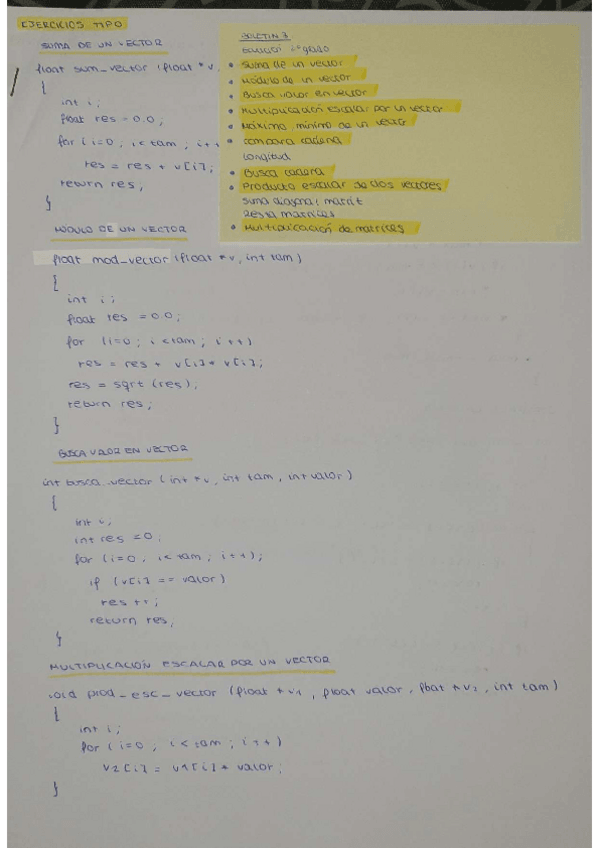 EJERCICIOS TIPO
SUMA DE UN VECTOR
float sum_vector (float *v,
{
int i;
float res = 0.0;
for (i=0; i<tam; i++
res = res + v[i];
return res;
}
BOLETIN 3
Ecuación 2º grado
• Suma de un vector
• Módulo de un vector
• Busca valor en vector
• Multiplicación escalar por un vector
• Máximo, mínimo de un vector
• compara cadena
Longitud
• Busca cadena
• Producto escalar de dos vectores
Suma diagonal matriz
Resta matrices
• Multiplicación de matrices
MODULO DE UN VECTOR
float mod_vector (float *v, int tam)
{
int i;
float res = 0.0;
for (i=0; i<tam; i++)
res = res + v[i]* v[i];
res = sqrt (res);
return res;
}
BUSCA VALOR EN VECTOR
int busca_vector (int *v, int tam, int valor)
{
int i;
int res = 0;
for (i=0; i<tam; i++);
if (v[i] == valor)
res ++;
return res;
}
MULTIPLICACIÓN ESCALAR POR UN VECTOR
void prod_esc_vector (float *v1, float valor, float *v2, int tam)
{
int i;
for (i=0; i<tam; i++)
v2[i] = v1[i] * valor;
}